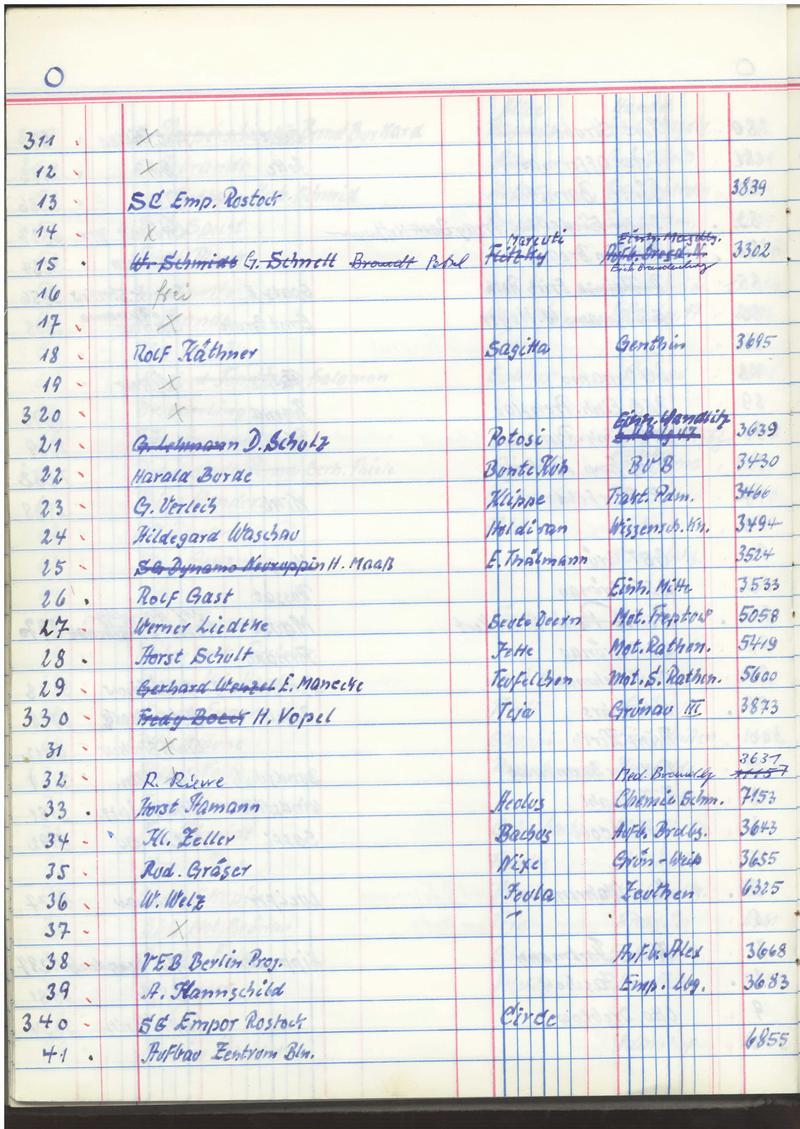 O
311 . X
12 . X
13 . SC Emp. Rostock 3839
14 X
Marcuti Einh. Magdbg.
15 . W. Schmidt G. Schnett Brandt Petel 3302
Einh. Brandenburg
16 frei
17 . X
18 . Rolf Käthner Sagitta Genthin 3695
19 . X
320 . X
Einh. Wandlitz
21 . G. Lehmann D. Schulz Potosi 3639
22 . Harald Borde Bunte Kuh BVB 3430
23 . G. Verleih Klippe Trakt. Pdm. 3466
24 . Hildegard Waschau Wissensch. Kn. 3494
25 . SG Dynamo Neuruppin H. Maaß E. Thälmann 3524
26 . Rolf Gast Einh. Mitte 3533
27 . Werner Liedtke Beute Deern Mot. Treptow 5058
28 . Horst Schult Jette Mot. Rathen. 5419
29 . Gerhard Wenzel E. Manecke Teufelchen Mot. S. Rathen. 5600
330 . Fredy Boeck H. Vopel Teja Grünau III. 3873
31 . X
3631
32 . R. Riewe Med. Brandbg
33 . Horst Hamann Aeolus Chemie Schm. 7153
34 . Kl. Zeller Bachus Aufb. Brdbg. 3643
35 . Rud. Gräser Nixe Grün-Weiß 3655
36 . W. Welz Zeuthen 6325
37 . X
38 . VEB Berlin Proj. Aufb. Alex 3668
39 . A. Hannschild Emp. Lbg. 3683
340 . SC Empor Rostock Circe
41 . Aufbau Zentrum Bln. 6855